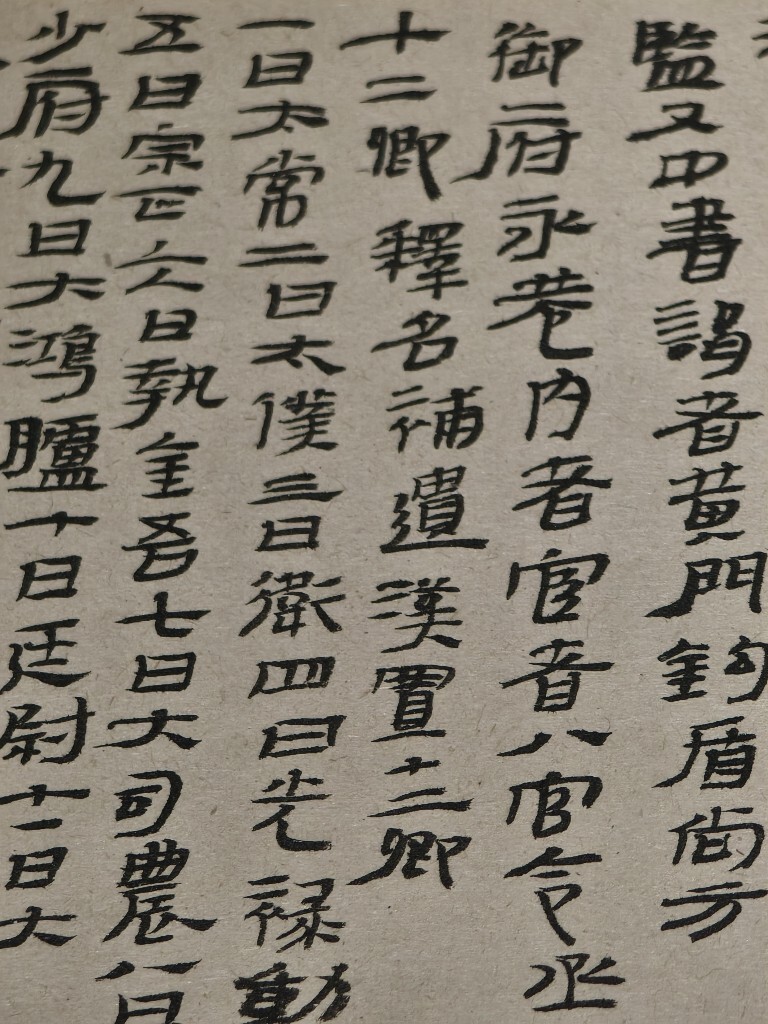 監又中書謁者黃門鉤盾尙方
御府永巷內者宦者八官令丞
十二卿釋名補遺漢置十二卿
一曰太常二曰太僕三曰衛四曰光祿勳
五曰宗正六曰執金吾七曰大司農八曰
少府九曰大鴻臚十曰廷尉十一曰大